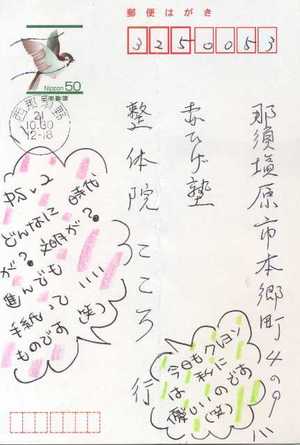 郵便はがき
Nippon 50
日本郵便
21
10.30
12-18
3250053
那須塩原市本郷町4の9
赤ひげ塾
整体院 こころ 行
PS.2 時代
どんなに 文明が?
が?
進んでも
手紙って いい
ものです (笑)
今日もクレヨン
は私に
優しいのです
(笑)